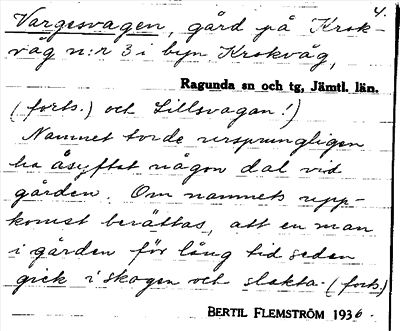 4.
Vargsvagen, gård på Krok-
våg n:r 3 i byn Krokvåg,
Ragunda sn och tg, Jämtl. län.
(forts.) och Lillsvagan!)
Namnet torde ursprungligen
ha åsyftat någon dal vid
gården. Om namnets upp-
komst berättas, att en man
i gården för lång tid sedan
gick i skogen och slakta- (forts.)
BERTIL FLEMSTRÖM 1936.